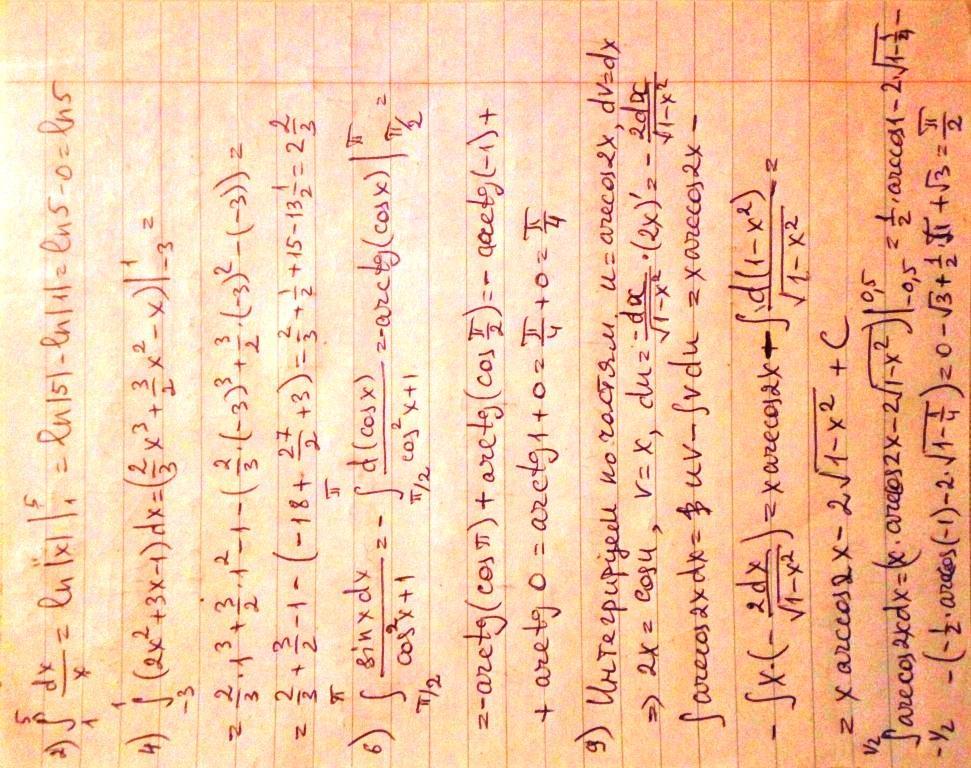 2) ∫₁⁵ dx/x = ln|x| |₁⁵ = ln|5| - ln|1| = ln5 - 0 = ln5
4) ∫₋₃¹ (2x²+3x-1)dx = (2/3 x³ + 3/2 x² - x)|₋₃¹ =
= 2/3 · 1³ + 3/2 · 1² - 1 - (2/3 · (-3)³ + 3/2 · (-3)² - (-3)) =
= 2/3 + 3/2 - 1 - (-18 + 27/2 + 3) = 2/3 + 1/2 + 15 - 13 1/2 = 2 2/3
6) ∫_{π/2}^{π} sinx dx / cos²x+1 = - ∫_{π/2}^{π} d(cosx) / cos²x+1 = -arctg(cosx) |_{π/2}^{π} =
= -arctg(cosπ) + arctg(cos π/2) = -arctg(-1) +
+ arctg 0 = arctg1 + 0 = π/4 + 0 = π/4
9) Интегрируем по частям, u = arccos2x, dv = dx
⇒ 2x = cosu, v = x, du = -dx/√(1-x²) · (2x)' = - 2dx/√(1-x²)
∫arccos2xdx = uv - ∫vdu = x arccos2x -
- ∫x·(- 2dx/√(1-x²)) = x arccos2x + ∫ d(1-x²)/√(1-x²) =
= x arccos2x - 2√(1-x²) + C
∫_{-1/2}^{1/2} arccos2xdx = (x · arccos2x - 2√(1-x²))|_{-0,5}^{0,5} = 1/2 · arccos1 - 2√(1-1/4) -
- (-1/2 · arccos(-1) - 2 · √(1-1/4)) = 0 - √3 + 1/2 · π + √3 = π/2